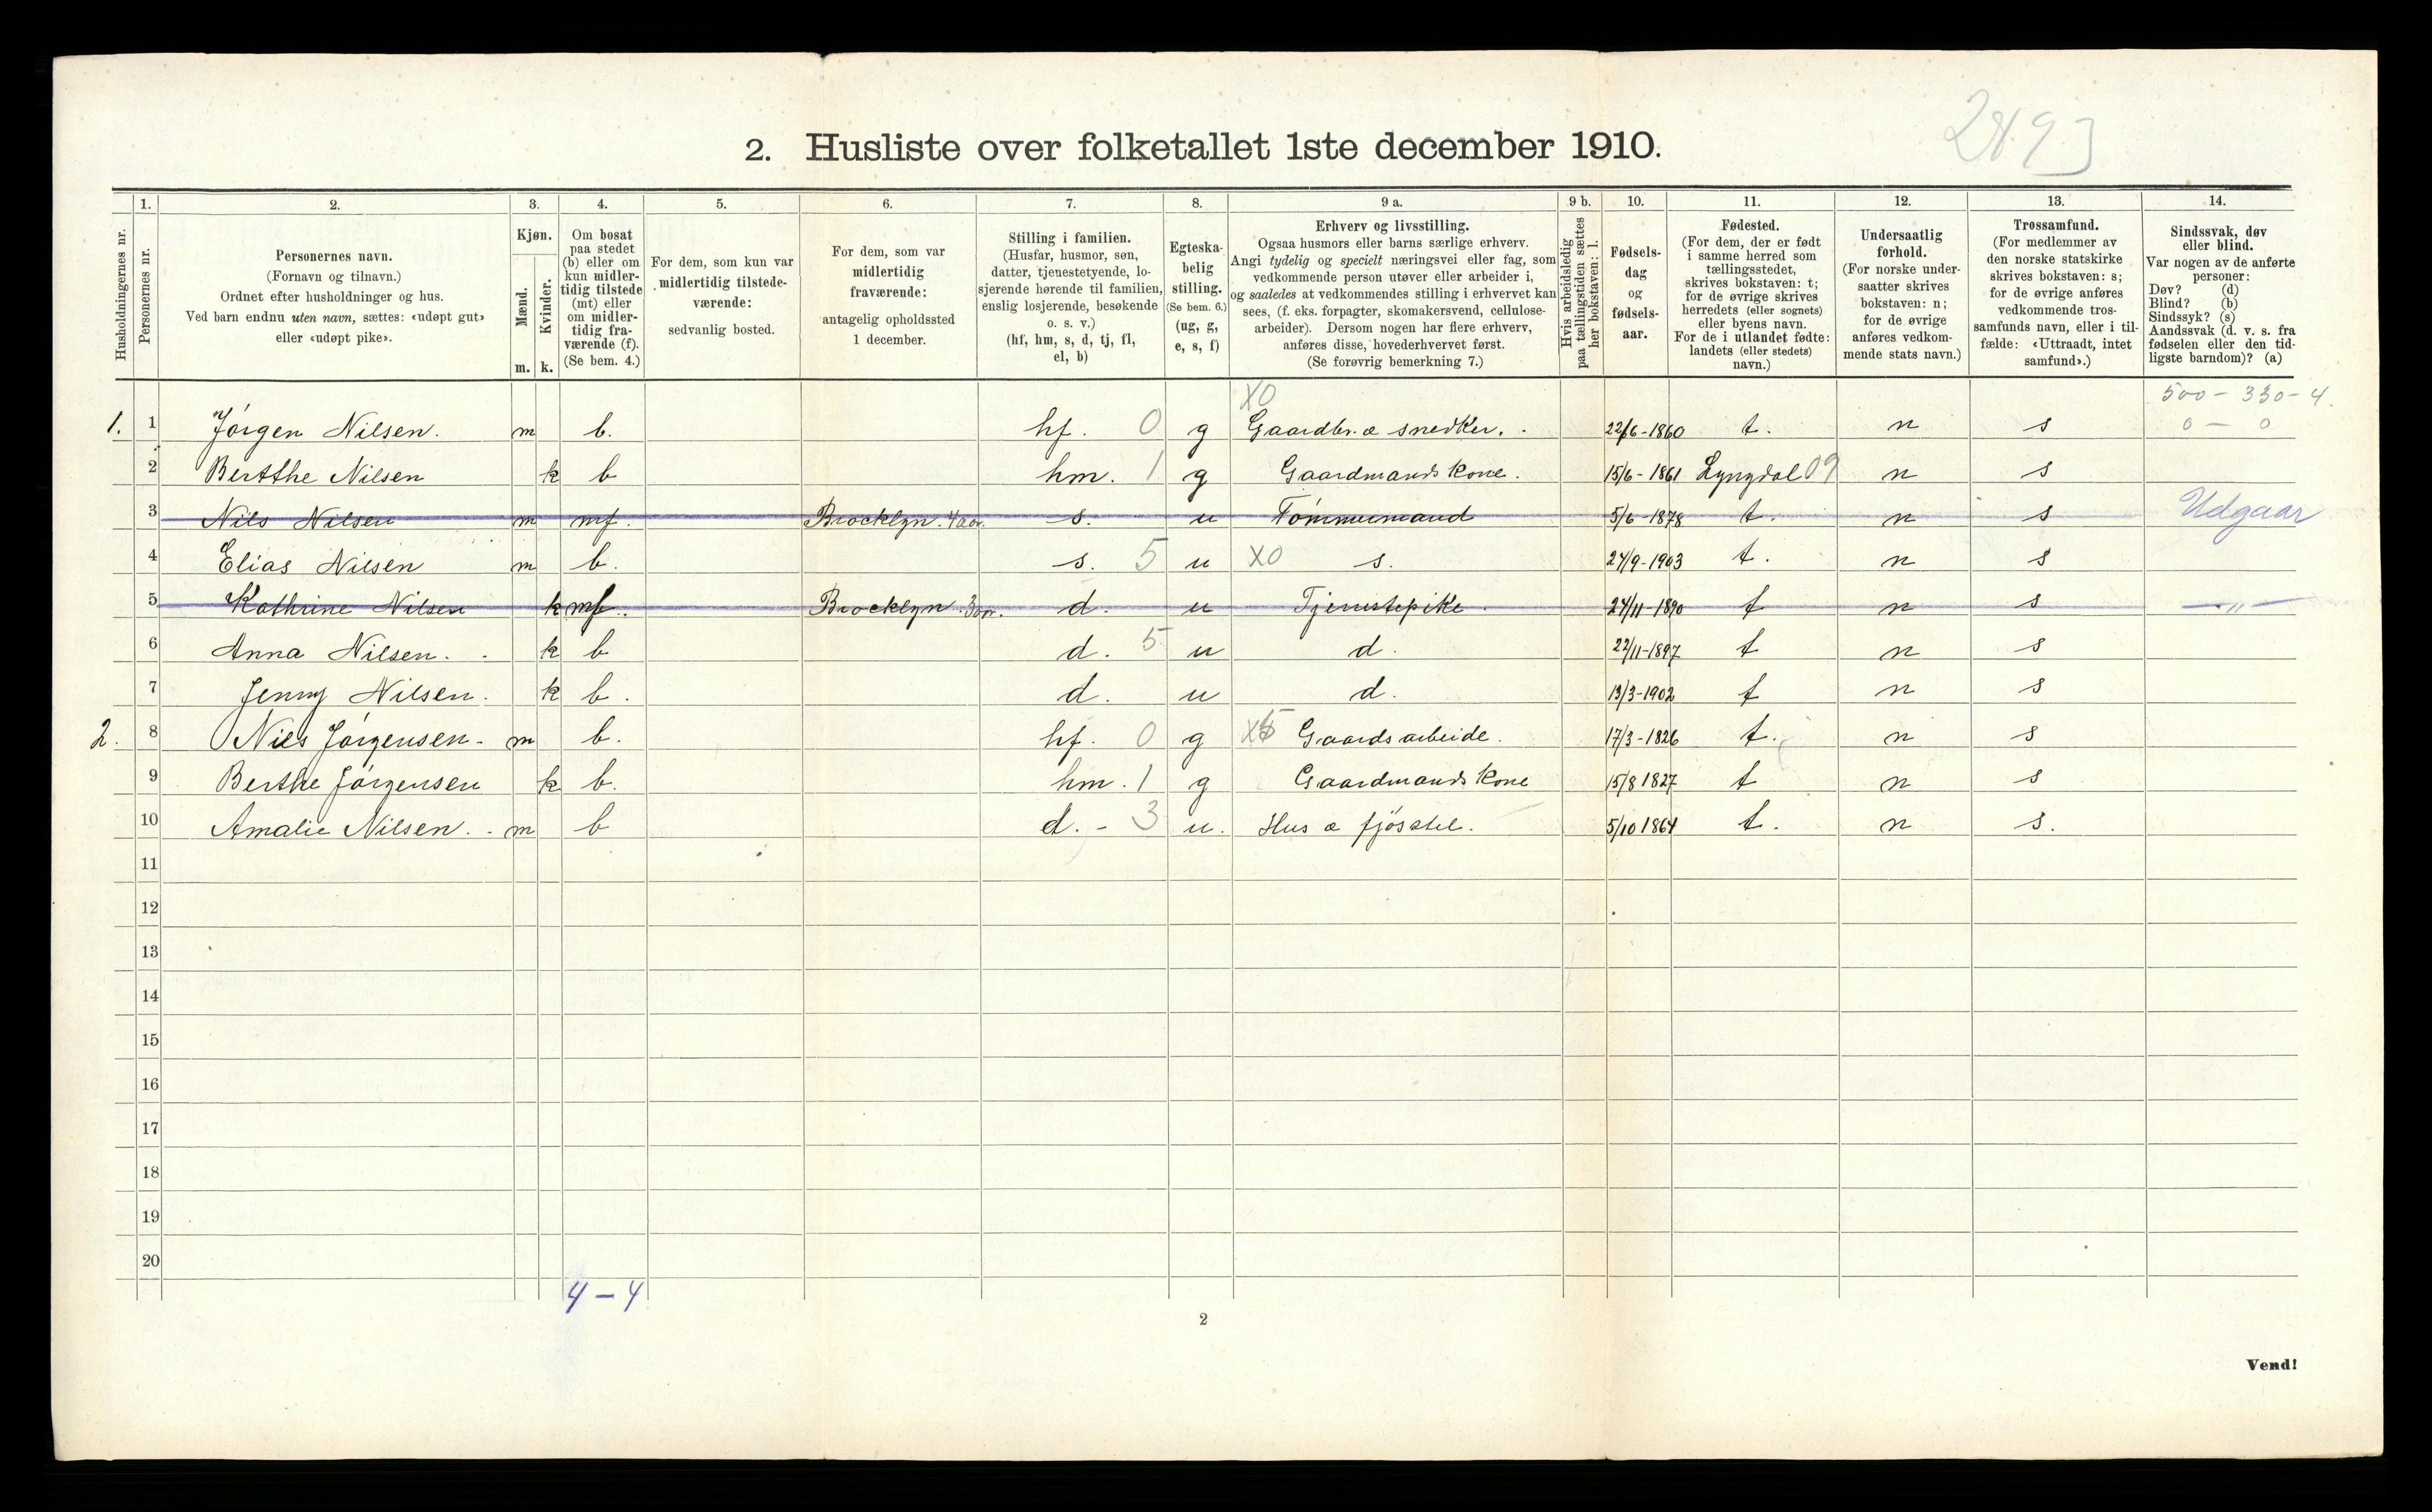 2893
2. Husliste over folketallet 1ste december 1910.
Husholdningernes nr.
1. Personernes nr.
2. Personernes navn.
(Fornavn og tilnavn.)
Ordnet efter husholdninger og hus.
Ved barn endnu uten navn, sættes: «udøpt gut»
eller «udøpt pike».
3. Kjøn.
Mænd. Kvinder.
m. k.
4. Om bosat
paa stedet
(b) eller om
kun midler-
tidig tilstede
(mt) eller
om midler-
tidig fra-
værende (f).
(Se bem. 4.)
5. For dem, som kun var
midlertidig tilstede-
værende:
sedvanlig bosted.
6. For dem, som var
midlertidig
fraværende:
antagelig opholdssted
1 december.
7. Stilling i familien.
(Husfar, husmor, søn,
datter, tjenestetyende, lo-
sjerende hørende til familien,
enslig losjerende, besøkende
o. s. v.)
(hf, hm, s, d, tj, fl,
el, b)
8. Egteska-
belig
stilling.
(Se bem. 6.)
(ug, g,
e, s, f)
9 a. Erhverv og livsstilling.
Ogsaa husmors eller barns særlige erhverv.
Angi tydelig og specielt næringsvei eller fag, som
vedkommende person utøver eller arbeider i,
og saaledes at vedkommendes stilling i erhvervet kan
sees, (f. eks. forpagter, skomakersvend, cellulose-
arbeider). Dersom nogen har flere erhverv,
anføres disse, hovederhvervet først.
(Se forøvrig bemerkning 7.)
9 b. Hvis arbeidsledig
paa tællingstiden sættes
her bokstaven: l.
10. Fødsels-
dag
og
fødsels-
aar.
11. Fødested.
(For dem, der er født
i samme herred som
tællingsstedet,
skrives bokstaven: t;
for de øvrige skrives
herredets (eller sognets)
eller byens navn.
For de i utlandet fødte:
landets (eller stedets)
navn.)
12. Undersaatlig
forhold.
(For norske under-
saatter skrives
bokstaven: n;
for de øvrige
anføres vedkom-
mende stats navn.)
13. Trossamfund.
(For medlemmer av
den norske statskirke
skrives bokstaven: s;
for de øvrige anføres
vedkommende tros-
samfunds navn, eller i til-
fælde: «Uttraadt, intet
samfund».)
14. Sindssvak, døv
eller blind.
Var nogen av de anførte
personer:
Døv? (d)
Blind? (b)
Sindssyk? (s)
Aandssvak (d. v. s. fra
fødselen eller den tid-
ligste barndom)? (a)
X0 500 - 330 - 4.
1. 1 Jørgen Nilsen. m b. hf. 0 g Gaardbr. o snedker. 22/6-1860 t. n s 0 - 0
2 Berthe Nilsen k b hm. 1 g Gaardmands Kone. 15/6-1861 Lyngdal 09 n s
3 Nils Nilsen m mf. Brocklyn. 4 aar. s. u Tømmermand 5/6-1878 t. n s Udgaar
4 Elias Nilsen m b. s. 5 u X0 s. 24/9-1903 t. n s
5 Kathrine Nilsen k mf. Brocklyn. 3 aar. d. u Tjenestepike. 24/11-1890 t n s - " -
6 Anna Nilsen. k b d. 5 u d. 22/11-1897 t n s
7 Jenny Nilsen. k b. d. u d. 13/3-1902 t n s
2. 8 Niels Jørgensen. m b. hf. 0 g Gaardsarbeide. 17/3-1826 t. n s
9 Berthe Jørgensen k b. hm. 1 g Gaardmands Kone 15/8 1827 t n s
10 Amalie Nilsen. m b d. - 3 u. Hus o fjøsstel. 5/10 1864 t. n s.
11
12
13
14
15
16
17
18
19
20
4 - 4
2
Vend!